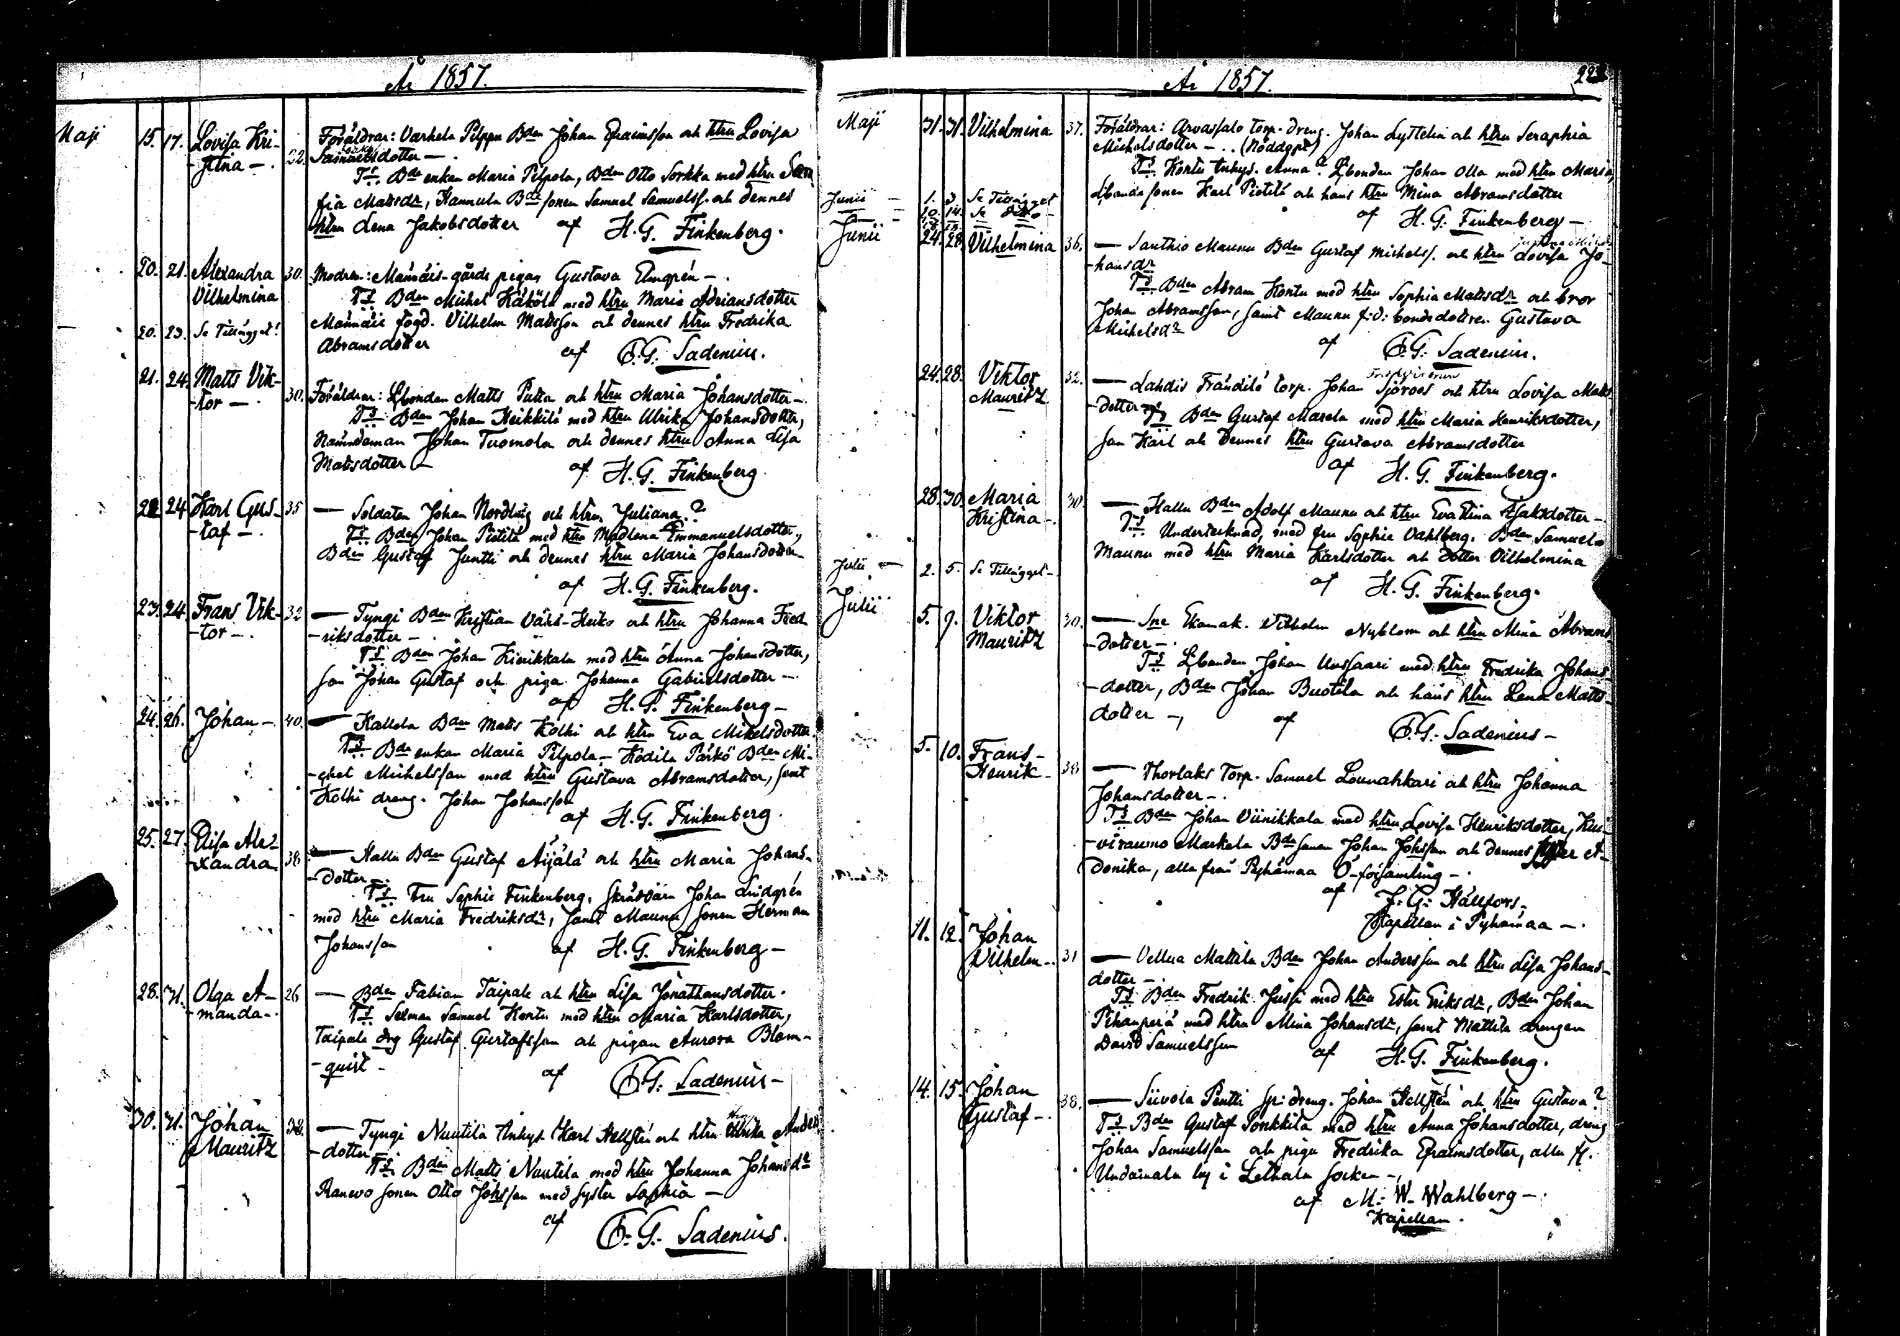 År 1857.
Maji 15. 17. Lovisa Kri-
-stina -. 22. Föräldrar: Varhela Pilppu Bden Johan Efraimsson och htru Lovisa
Samuelsdotter -
T.S. Bde enkan Maria Pilpola, Bden Otto Sorkka med htru
fia Matsdr, Kannula Bde sonen Samuel Samuelss. och dennes
htru Lena Jakobsdotter af H. G. Finkenberg.
20. 21. Alexandra
Vilhelmina 30. Modren: Männäis gårds pigan Gustava Elmgrén -
T.S. Bden Michel Käkölä med htru Maria Adriansdotter
Männäis fogd. Vilhelm Matsson och dennes htru Fredrika
Abramsdotter af G. Sadenius.
20. 23. Se Tillägget!
21. 24. Matts Vik-
-tor - 30. Föräldrar: Lbonden Matts Putta och htru Maria Johansdotter -
T.S. Bden Johan Heikkilä med htru Ulrika Johansdotter,
Nämndeman Johan Tuomola och dennes htru Anna Lisa
Matsdotter - af H. G. Finkenberg.
22 24 Karl Gus-
-taf -. 35 — Soldaten Johan Nordling och htru Juliana?
T.S. Bden Johan Pietilä med htru Madlena Emmanuelsdotter,
Bden Gustaf Juntti och dennes htru Maria Johansdotter
af H. G. Finkenberg.
23. 24. Frans Vik-
-tor -. 32 — Tyngi Bden Kristian Vähä-Heiko och htru Johanna Fred-
-riksdotter -
T.S. Bden Johan Kivikkala med htru Anna Johansdotter,
son Johan Gustaf och piga Johanna Gabrielsdotter -
af H. G. Finkenberg -
24. 26. Johan - 40. — Kallela Bden Mats Kolhi och htru Eva Mikelsdotter
T.S. Bde enkan Maria Pilpola - Ködilä Pärkö Bden Mi-
-chel Michelsson med htru Gustava Abramsdotter, samt
Kolhi dreng. Johan Johansson
af H. G. Finkenberg
25. 27. Elisa Ale-
-xandra 38 — Hallu Bden Gustaf Äijälä och htru Maria Johans-
-dotter
T.S. Fru Sophie Finkenberg, Skräddarn Johan Lindgrén
med htru Maria Fredriksdr, samt Maunu sonen Herman
Johansson af H. G. Finkenberg -
28. 31. Olga A-
-manda -. 26 — Bden Fabian Taipale och htru Lisa Jonathansdotter.
T.S. Sexman Samuel Kontu med htru Maria Karlsdotter,
Taipale drg Gustaf Gustafsson och pigan Aurora Blom-
-quist - af G. Sadenius -
30. 31. Johan
Mauritz 32. — Tyngi Nuutila Inhys. Karl Hellstén och htru Ulrika Anders
-dotter
T.S. Bden Matts Nuutila med htru Johanna Johansdr
Ranevo sonen Otto Johsson med syster Sophia -
af G. Sadenius.
År 1857.
Maji 31. 31. Vilhelmina 37. Föräldrar: Arvassalo torp. dreng. Johan Lyttelin och htru Seraphia
Michelsdotter -. (Nöddöpt)
T.S. Kontu Inhys. Anna? Lbonden Johan Olla med htru Maria,
Lbondesonen Karl Pietilä och hans htru Mina Abramsdotter
af H. G. Finkenberg -
Junii 1. 3. Se Tillägget
10. 14. Se
Junii 24. 28. Vilhelmina 36. — Santtio Maunu Bden Gustaf Michelss. och htru Lovisa Jo-
-hansdr
T.S. Bden Abram Kontu med htru Sophia Matsdr och bror
Johan Abramsson, samt Maunu f:d: bondedottren Gustava
Michelsdr af G. Sadenius.
24. 28. Viktor
Mauritz 32. — Lahdis Frändilä torp. Johan Sjöroos och htru Lovisa Mats
-dotter T.S. Bden Gustaf Marela med htru Maria Henriksdotter,
son Karl och dennes htru Gustava Abramsdotter
af H. G. Finkenberg.
28. 30. Maria
Kristina -. 30. — Hallu Bden Adolf Maunu och htru Eva Stina Isaksdotter -
T.S. Undertecknad, med fru Sophie Vahlberg. Bden Samuel
Maunu med htru Maria Karlsdotter och dotter Vilhelmina
af H. G. Finkenberg.
Julii 2. 5. Se Tillägget -
Julii 5. 9. Viktor
Mauritz 30. — Vilhelm Nyblom och htru Mina Abrams
-dotter -.
T.S. Lbonden Johan Uussaari med htru Fredrika Johans-
-dotter, Bden Johan Buotila och hans htru Lena Matts-
dotter -, af G. Sadenius -
5. 10. Frans -
Henrik - 38 — Thorlaks torp. Samuel Lounahkari och htru Johanna
Johansdotter -.
T.S. Bden Johan Viinikkala med htru Lovisa Henriksdotter, Kus-
-virauno Markela Bdesonen Johan Johsson och dennes syster A-
donika, alla från Pyhämaa Ö-församling -.
af J. G. Hällfors -
Kapellan i Pyhämaa -.
11. 12. Johan
Vilhelm -. 31 — Vellua Mattila Bden Johan Andersson och htru Lisa Johans-
dotter -.
T.S. Bden Fredrik Jussi med htru Ester Eriksdr, Bden Johan
Pihanperä med htru Mina Johansdr, samt Mattila drengen
David Samuelsson af H. G. Finkenberg.
14. 15. Johan
Gustaf -. 38. — Siivola Pentti dreng. Johan Hellstén och htru Gustava?
T.S. Bden Gustaf Sonkkila med htru Anna Johansdotter, dreng
Johan Samuelsson och piga Fredrika Efraimsdotter, alla fr.
Undamala by i Lethala socken -,
af M: W. Wahlberg -.
Kapellan.